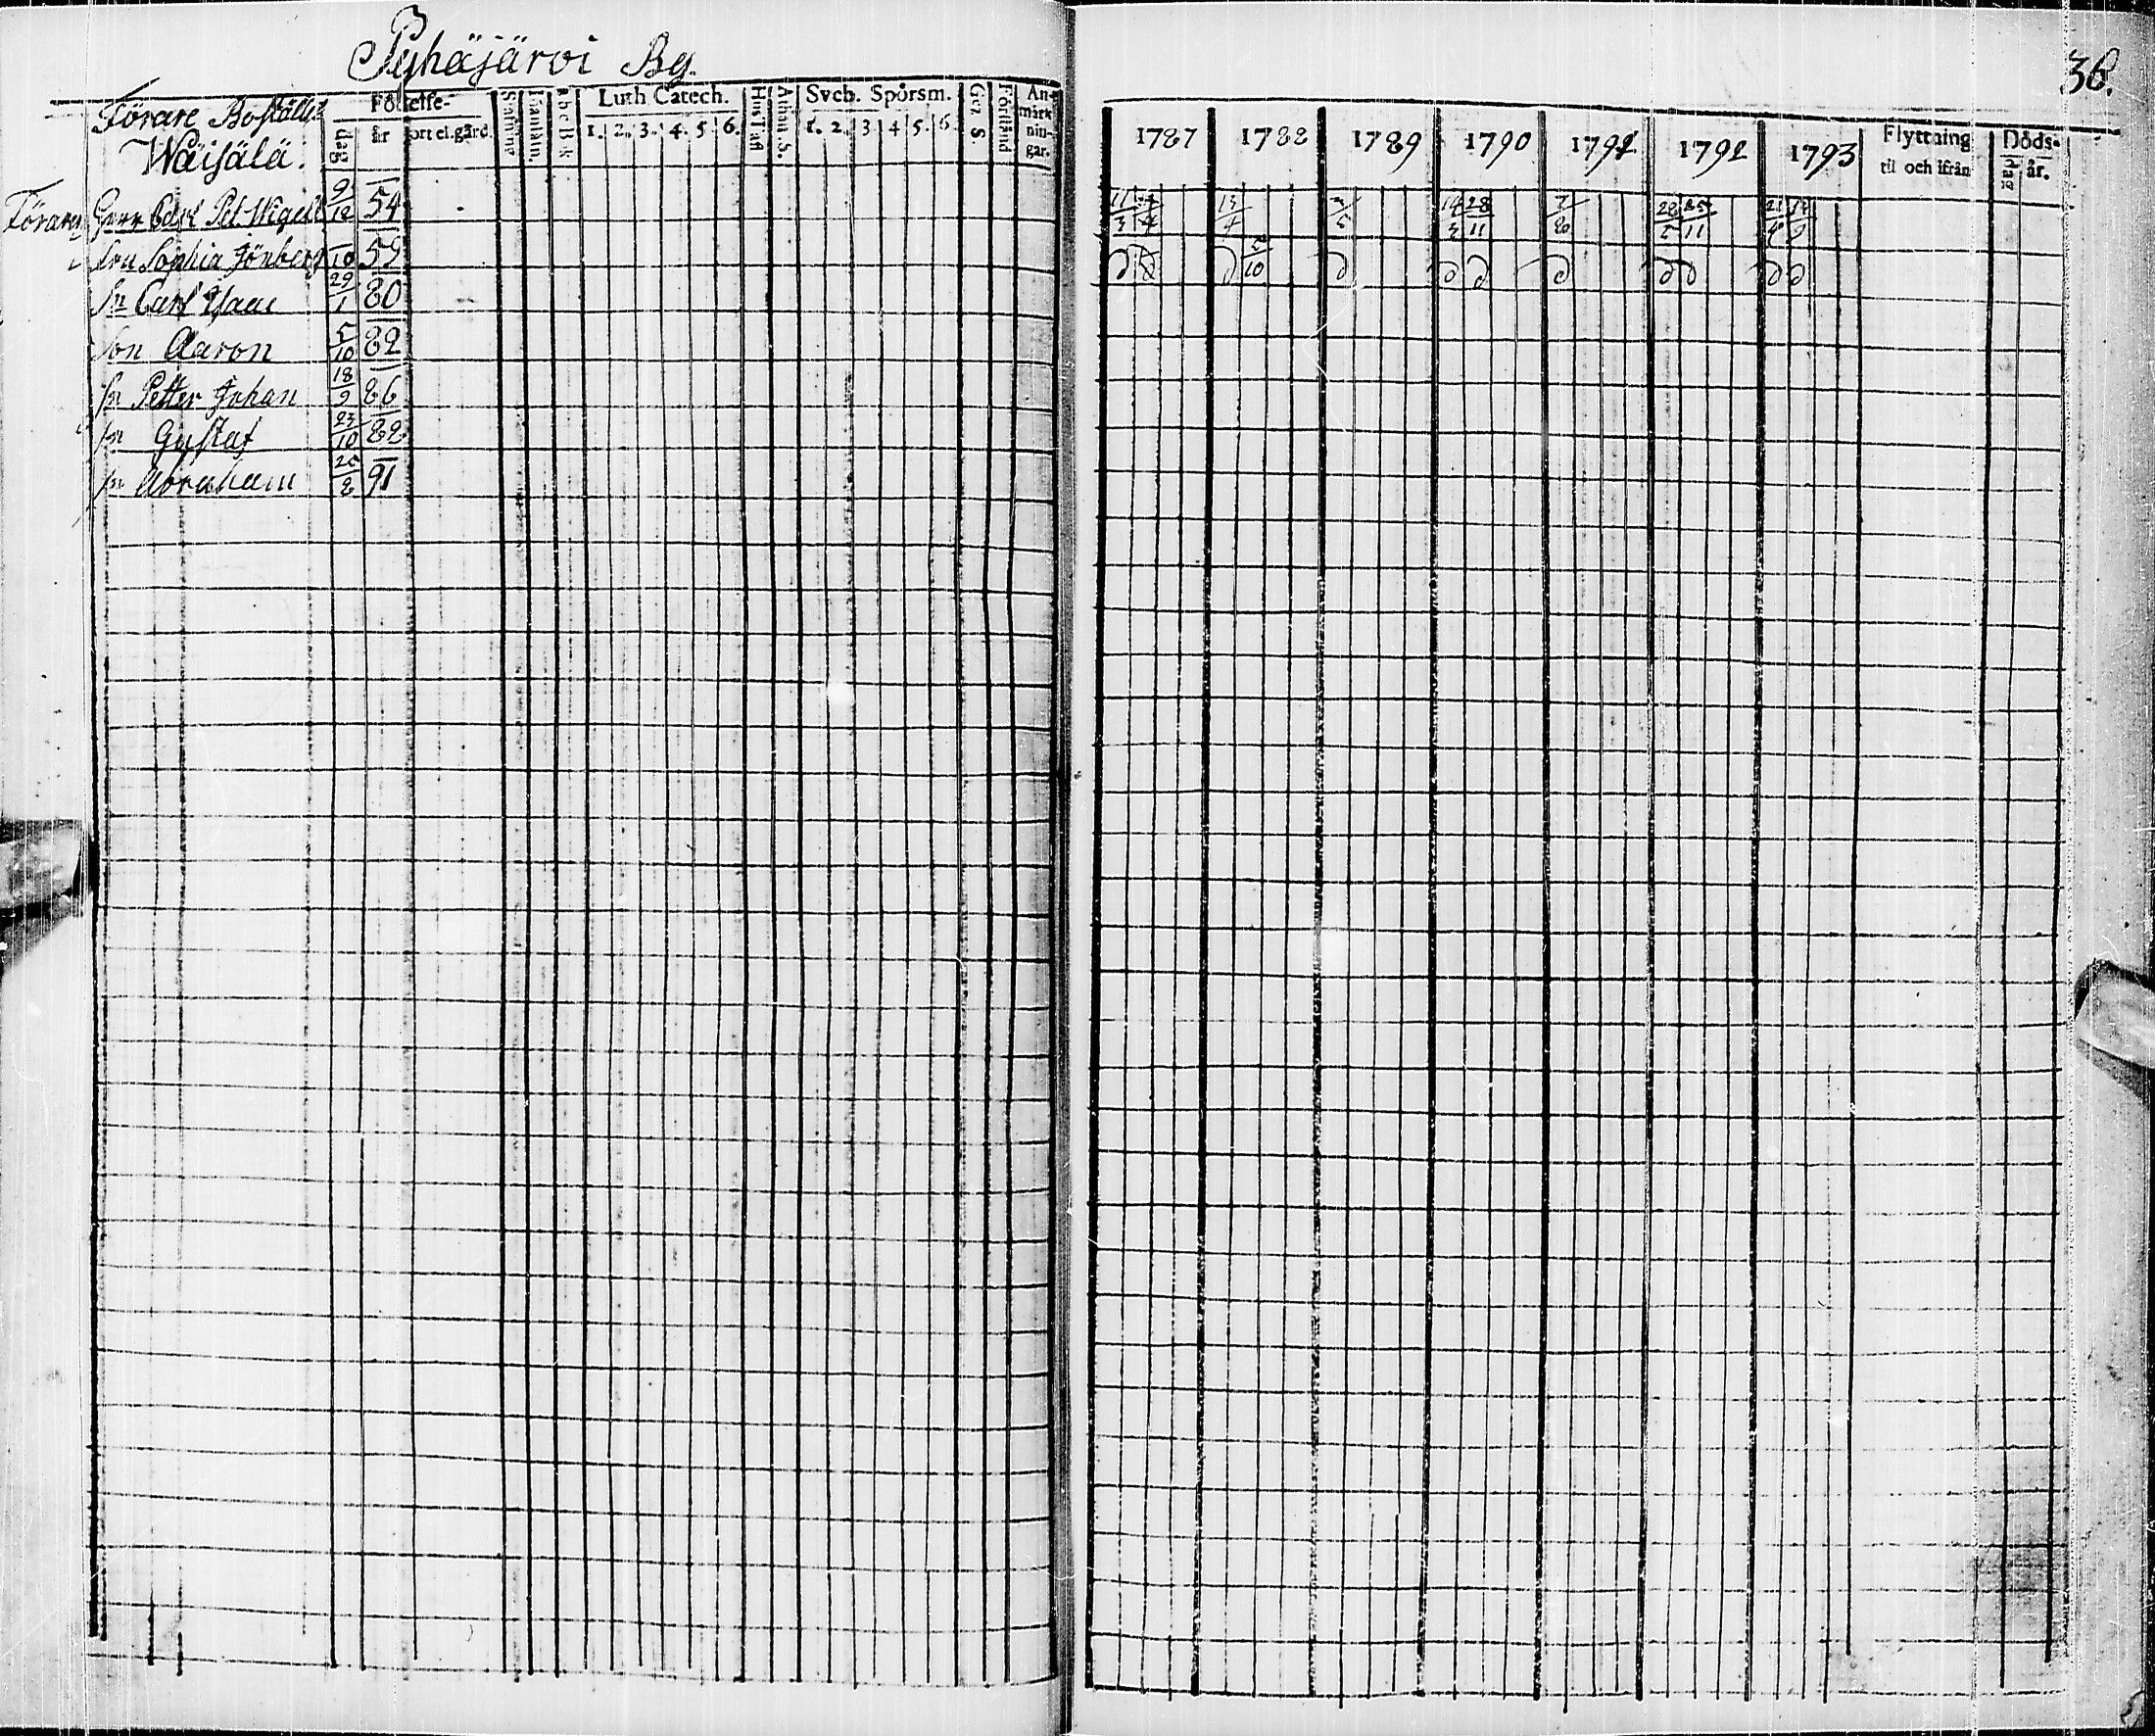 Pyhäjärvi By.
36.
Förare Boställe
Wäisälä.
Födelse-
dag år ort el. gård.
Luth Catech.
1. 2. 3. 4. 5. 6.
Hust afl
Athan. S.
Sveb. Spörsm.
1. 2. 3 4 5. 6
Gez. S.
Förstånd
An-
märk
nin-
gar.
1787 1788 1789 1790 1791 1792 1793
Flyttning
til och ifrån
Döds-
dag år.
Förare Herr Carl Pet. Wigell 9/12 54
11/3 13/4 14/3 28/11 7/20 28/5 25/11
fru Sophia Jönberg /10 59
5/10
sn Carl Isaac 29/1 80
son Aaron 5/10 82
sn Petter Johan 18/9 86
sn Gustaf 23/10 88
sn Abraham 25/8 91